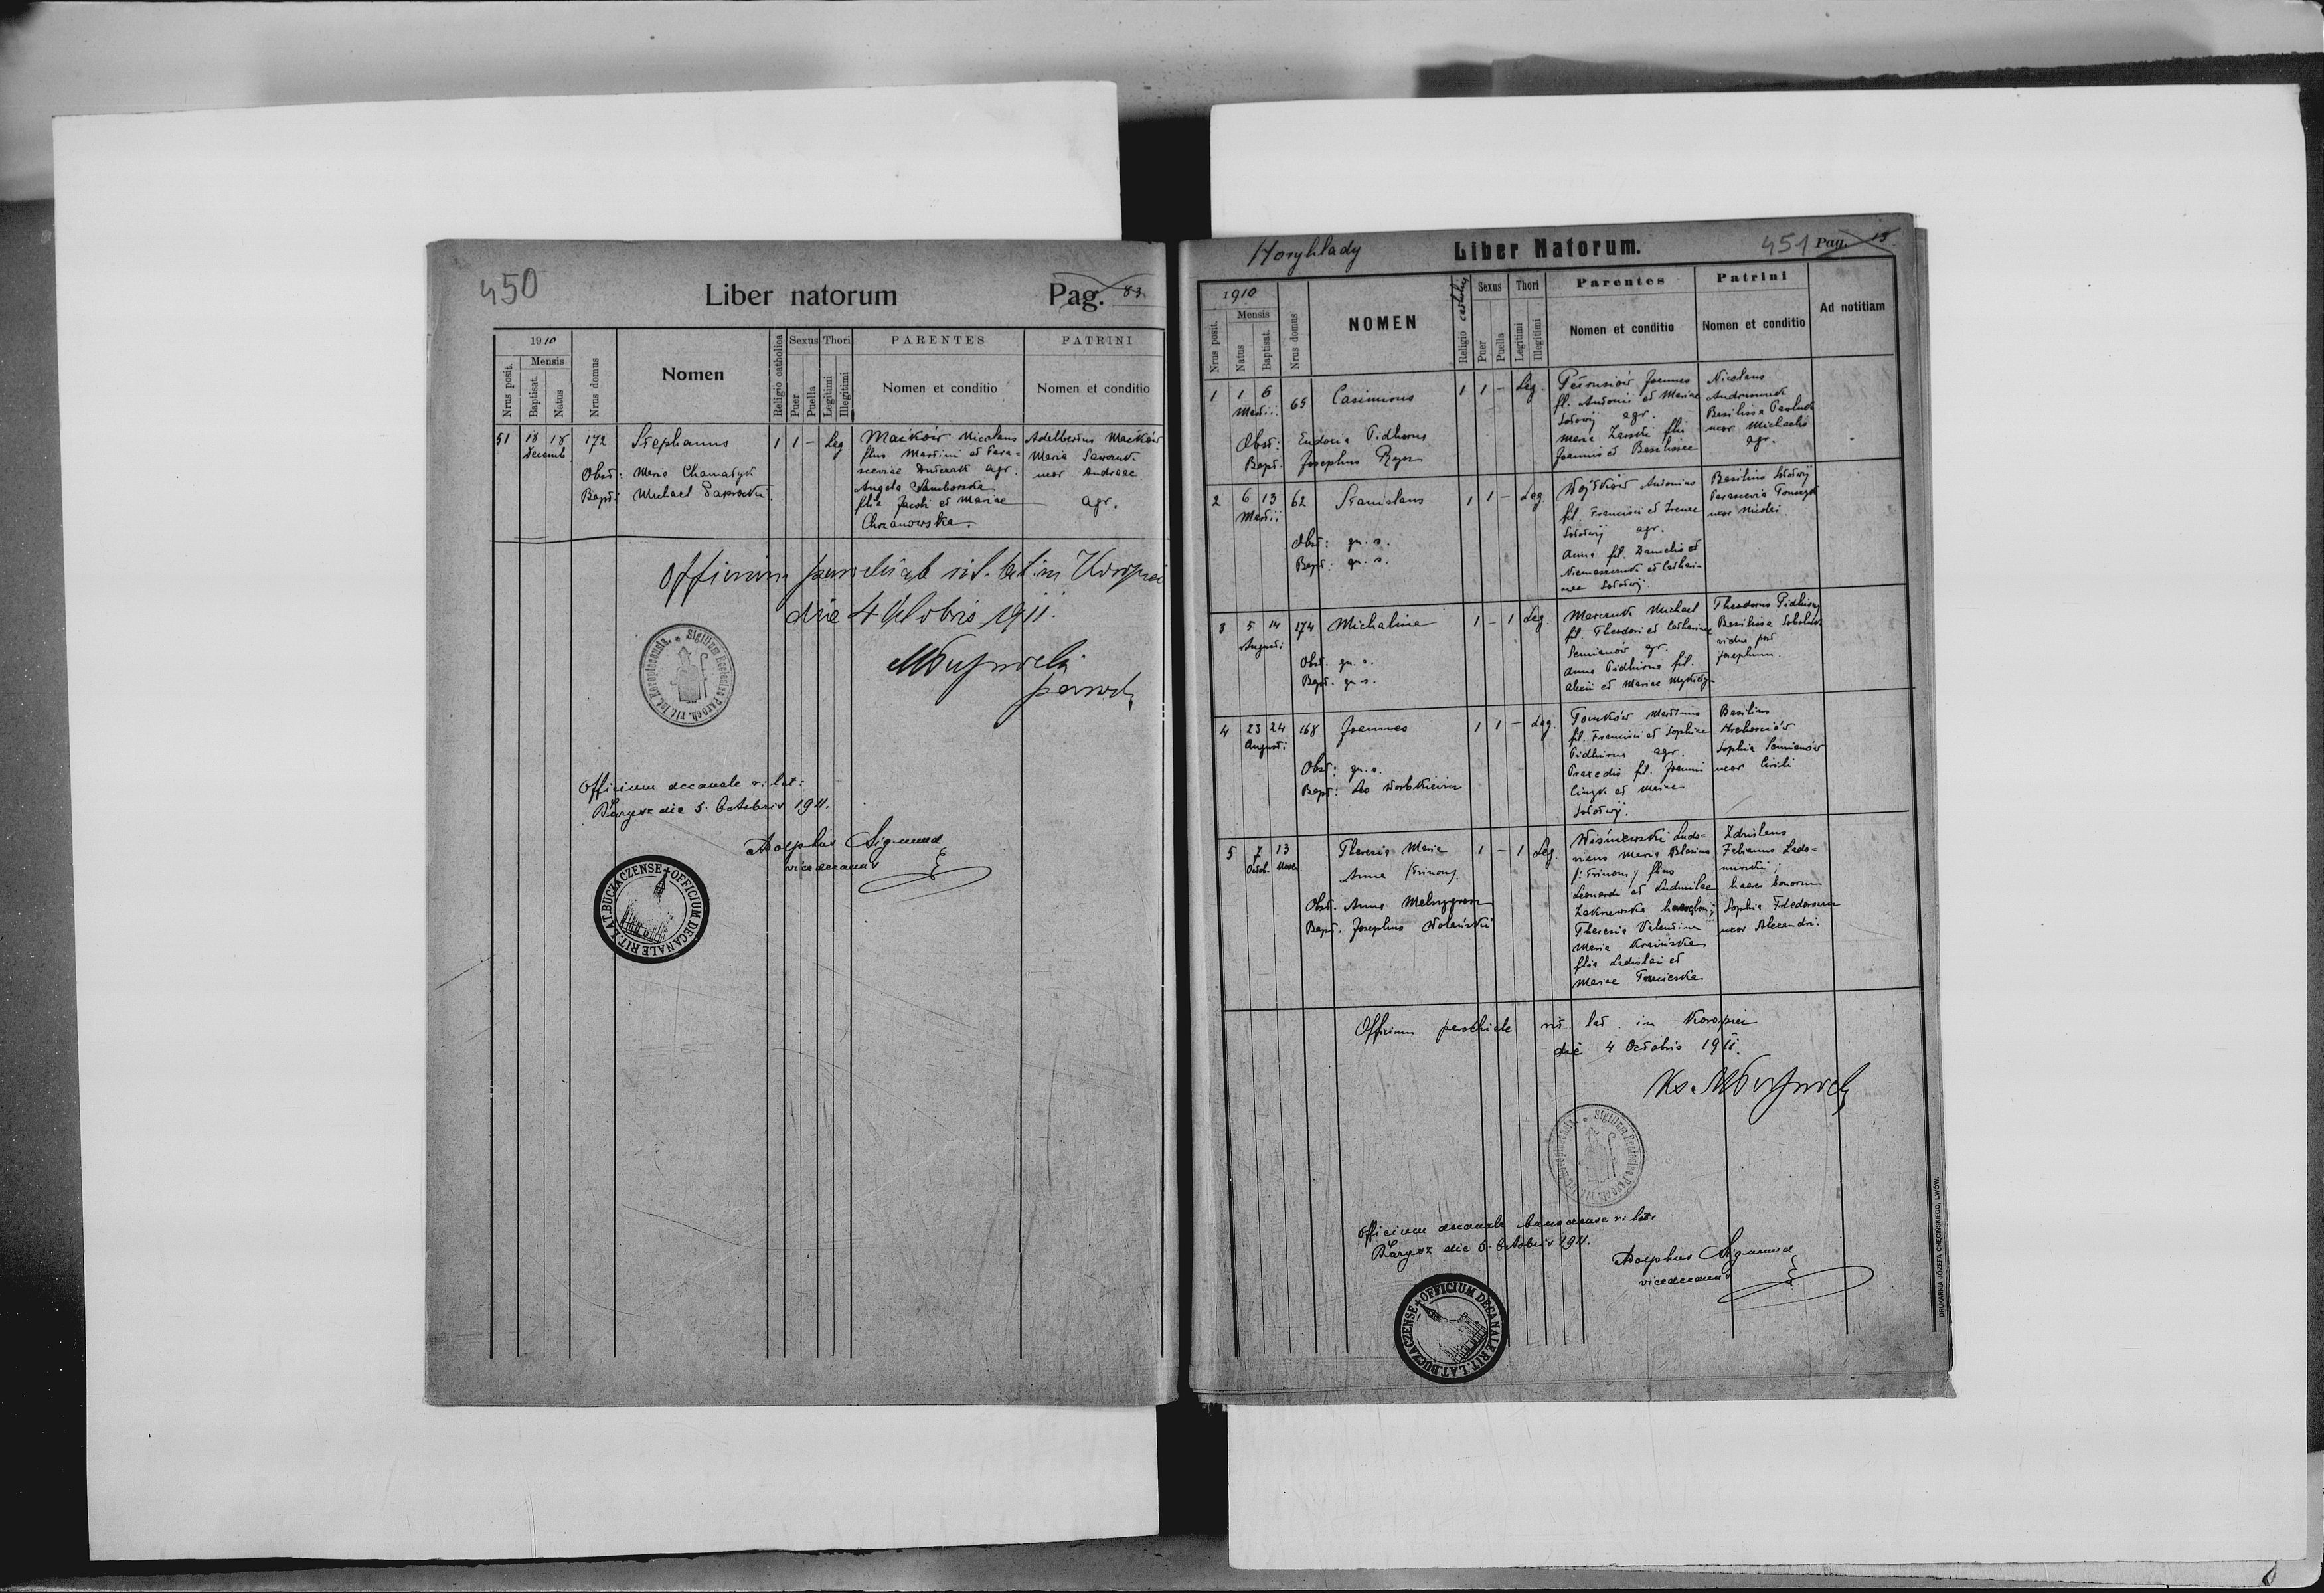 450
Liber natorum
Pag. 83
1910
Nrus posit.
Mensis
Baptisat.
Natus
Nrus domus
Nomen
Religio catholica
Sexus
Puer
Puella
Thori
Legitimi
Illegitimi
PARENTES
Nomen et conditio
PATRINI
Nomen et conditio
51 18 18 172 Stephanus 1 1 - Leg
Decemb
Obst: Maria Chamatyk
Bapt: Michael
Maćków Nicolaus
filius Martini et Para-
sceviae agr.
Angela Samborska
filia Jacobi et Mariae
Chrzanowska.
Adelbertus Maćków
Maria
uxor Andreae
agr.
Officium parochiale rit. lat. in Koropiec
die 4 Octobris 1911.
paroch
Sigillum Ecclesiae Paroch. rit. lat. Koropiecensis.
Officium decanale r: lat:
Barysz die 5. Octobris 1911.
Adolphus Sigmund
vicedecanus
OFFICIUM DECANALE RIT. LAT. BUCZACZENSE
Horyhlady
Liber Natorum.
451 Pag. 15
1910
Nrus posit.
Mensis
Natus
Baptisat.
Nrus domus
NOMEN
Religio catholica
Sexus
Puer
Puella
Thori
Legitimi
Illegitimi
Parentes
Nomen et conditio
Patrini
Nomen et conditio
Ad notitiam
1 1 6 65 Casimirus 1 1 - Leg.
Martii
Obst: Eudocia Pidhorna
Bapt: Josephus
Joannes
fil. Antonii et Mariae
Sołowij agr.
Maria filia
Joannis et Basilissae
Nicolaus
Basilissa Pawluk
uxor Michaelis
agr.
2 6 13 62 Stanislaus 1 1 - Leg.
Martii
Obst: qu. s.
Bapt: qu. s.
Wojtków Antonius
fil. Francisci et Irenae
Sołowij agr.
Anna fil. Danielis et
et Cathari-
nae Sołowij.
Basilius Sołowij
Parascevia
uxor
3 5 14 174 Michalina 1 - 1 Leg.
Augusti
Obst. qu. s.
Bapt. qu. s.
Marczuk Michael
fil. Theodori et Catharinae
Semianów agr.
Anna Pidhirna fil.
Alexii et Mariae
Theodorus Pidhirny
Basilissa
vidua post
Josephum.
4 23 24 168 Joannes 1 1 - Leg.
Augusti
Obst: qu. s.
Bapt: Leo
Tomków Martinus
fil. Francisci et Sophiae
Pidhirna agr.
Praxedis fil. Joannis
et Mariae
Sołowij.
Basilius
Sophia Semianów
uxor Cirili
5 7 13 Theresia Maria 1 - 1 Leg.
Octob. Novem.
Anna (trinom).
Obst. Anna
Bapt. Josephus Wolański
Wiśniewski Ludo-
vicus Maria Blasius
(: trinom:) filius
Leonardi et Ludmilae
Theresia Valentina
Maria Kraińska
filia Ladislai et
Mariae
Zdzislaus
haeres bonorum
Sophia Fedorowicz
uxor Alexandri.
Officium parochiale rit. lat. in Koropiec
die 4 Octobris 1911.
Ks.
Sigillum Ecclesiae Paroch. rit. lat. Koropiecensis.
Officium decanale buczaczense r: lat:
Barysz die 5. Octobris 1911.
Adolphus Sigmund
vicedecanus
OFFICIUM DECANALE RIT. LAT. BUCZACZENSE
DRUKARNIA JÓZEFA CHĘCIŃSKIEGO, LWÓW.